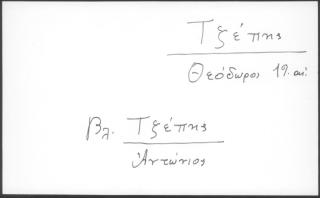 Τζέπης
Θεόδωρος 19. αι.
Βλ. Τζέπης
Ἀντώνιος